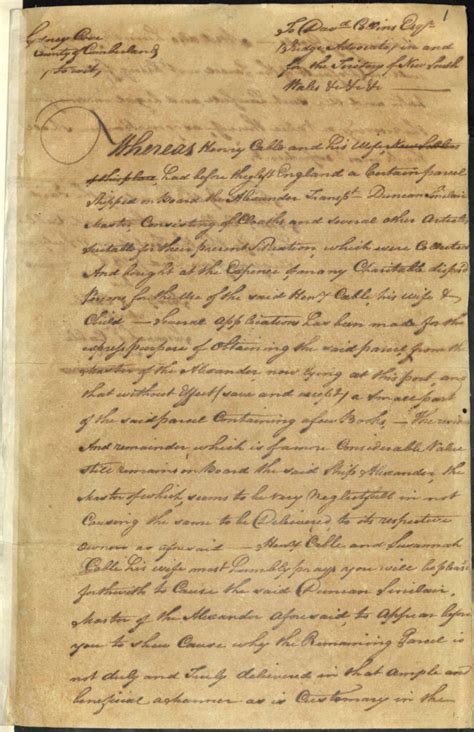 1
Sydney Cove
County of Cumberland
to wit,
To Davd. Collins Esqr.
Judge Advocate, in and
for the Teritory of New South
Wales &c &c &c
Whereas Henry Cable and his Wife, New Settlers
of this place, had before they left England a Certain parcel
Shipped on Board the Alexander Transpt. Duncan Sinclair
Master, Consisting of Cloaths and several other Articles
suitable for their present Situation, which were Collected
And bought at the Expence of many Charitable disposd
Persons for the Use of the said Heny Cable, his Wife &
Child — Several Applications has been made for the
express purpose of Obtaining the said parcel from the
Master of the Alexander now lying at this port, and
that without Effect (save and except) a small part
of the said parcel Containing a few Books, — The residue
And remainder, which is of a more Considerable Value
Still remains on Board the said Ship Alexander, the
Master of which, seems to be very Neglectfull in not
Causing the same to be Delivered, to its respective
owners as aforesaid — Henry Cable and Susannah
Cable his wife most humbly prays you will be pleas
forthwith to Cause the said Duncan Sinclair,
Master of the Alexander aforesaid, to Appear before
you to shew Cause why the Remaining Parcel is
not duly and Truly delivered in that ample and
beneficial a manner as is Customary in the